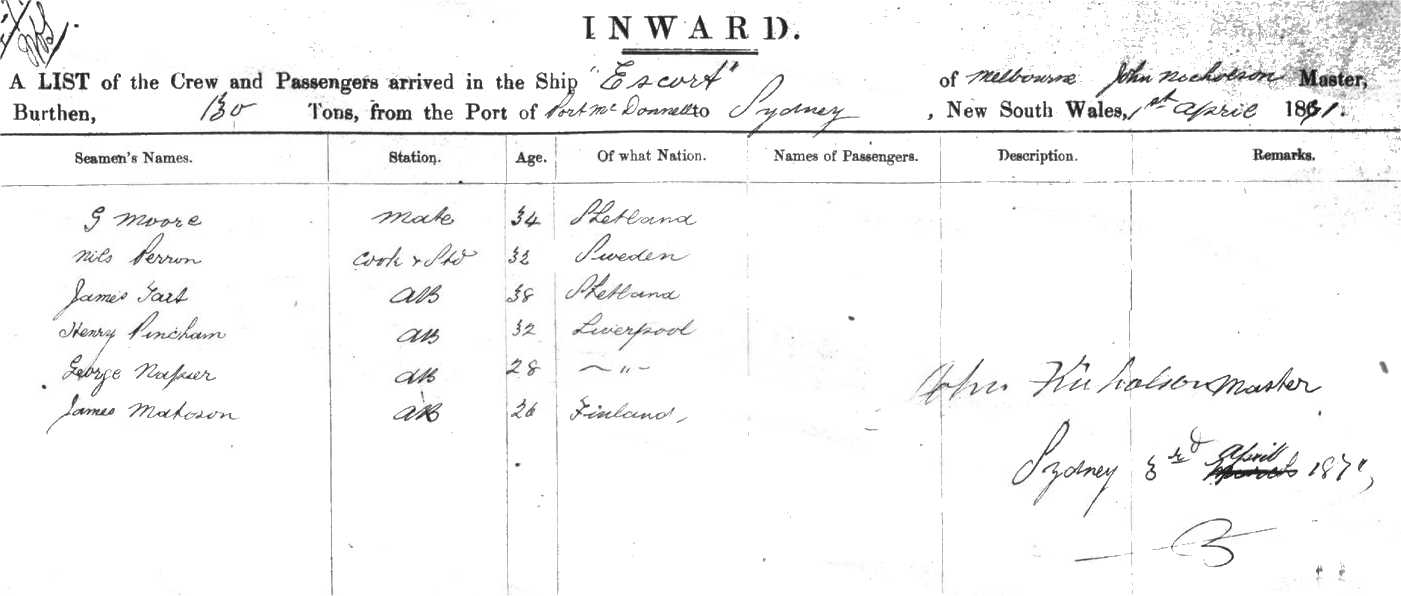 INWARD.
A LIST of the Crew and Passengers arrived in the Ship "Escort" of Melbourne John Nicholson Master,
Burthen, 130 Tons, from the Port of Port Mc Donnell to Sydney, New South Wales, 1st April 1871.
Seamen's Names. Station. Age. Of what Nation. Names of Passengers. Description. Remarks.
G Moore Mate 34 Shetland
Nils Perron Cook & Std 32 Sweden
James 38 Shetland
AB
Henry Pincham AB 32 Liverpool
George Napier AB 28 – " –
James Matoson AB 26 Finland,
John Nicholson Master
Sydney 3rd April 1871,